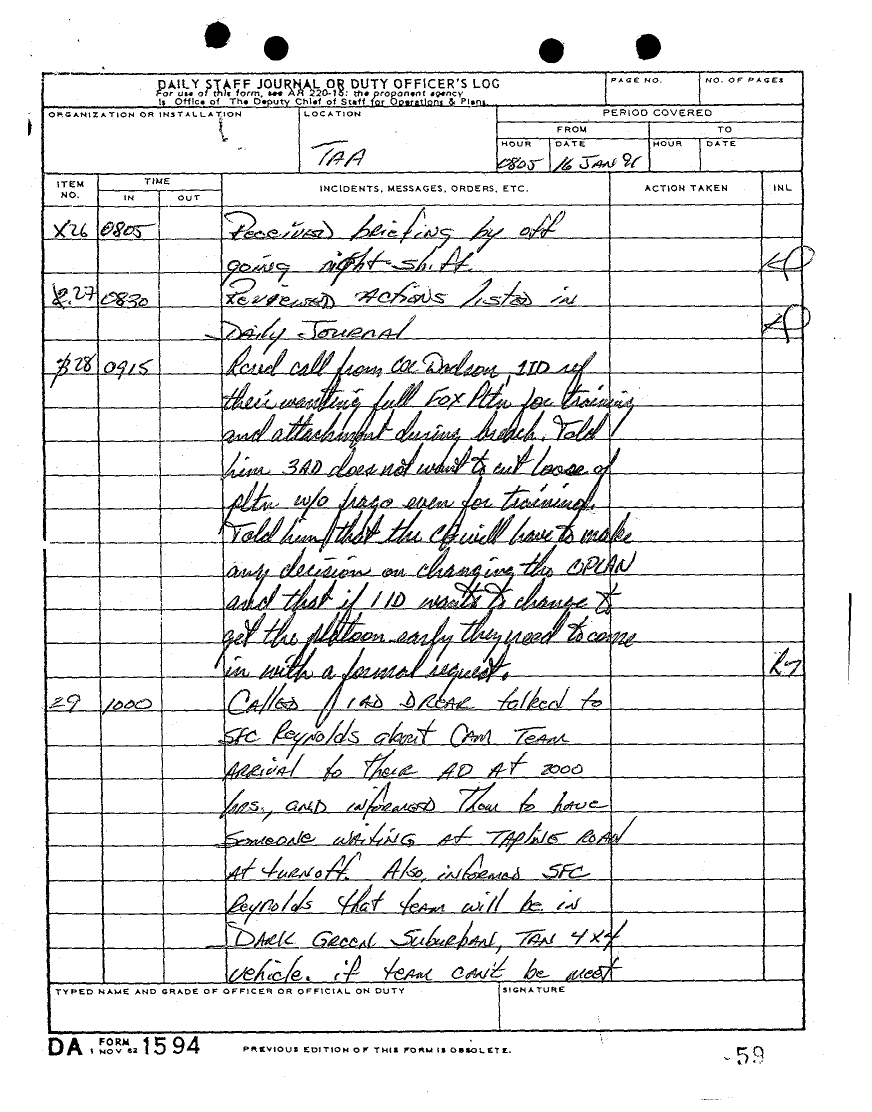 DAILY STAFF JOURNAL OR DUTY OFFICER'S LOG
For use of this form, see AR 220-15: the proponent agency
is Office of The Deputy Chief of Staff for Operations & Plans.
PAGE NO.
NO. OF PAGES
ORGANIZATION OR INSTALLATION
LOCATION
TAA
PERIOD COVERED
FROM
TO
HOUR
DATE
HOUR
DATE
0805
16 JAN 91
ITEM NO.
TIME
IN
OUT
INCIDENTS, MESSAGES, ORDERS, ETC.
ACTION TAKEN
INL
26 0805 Received briefing by off
going night shift.
27 0830 Reviewed Actions listed in
Daily Journal
28 0915 Rcvd call from Dodson, 1ID ref
their wanting full FOX Pltn for training
and attachment during breach. Told
him 3AD does not want to cut loose of
pltn w/o frago even for training.
Told him that the CG will have to make
any decision on changing the OPLAN
and that if 1ID wants to change to
get the platoon early they need to come
in with a formal request.
29 1000 Called 1AD DREAR talked to
SFC Reynolds about CAM TEAM
ARRIVAL to their AO AT 2000
hrs., AND informed Them to have
Someone WAITING AT TAPLINE ROAD
AT turnoff. Also, informed SFC
Reynolds that team will be in
DARK GREEN Suburban, TAN 4x4
vehicle. if TEAM can't be meet
TYPED NAME AND GRADE OF OFFICER OR OFFICIAL ON DUTY
SIGNATURE
DA FORM 1 NOV 62 1594
PREVIOUS EDITION OF THIS FORM IS OBSOLETE.
59